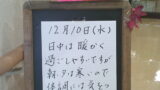 12月10日(水)
日中は暖かく
過ごしやすいですが
朝・夕は寒いので
体調には気をつ